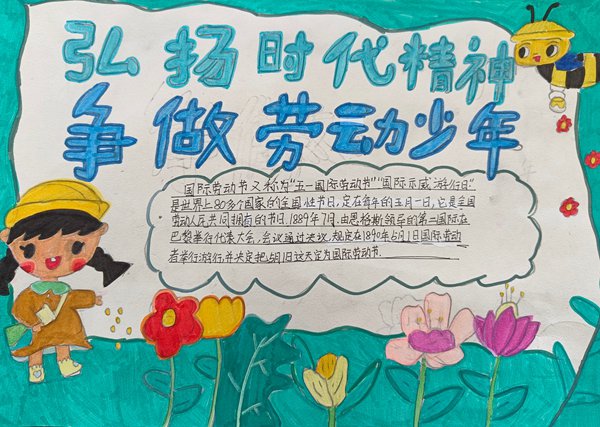 弘扬时代精神
争做劳动少年
国际劳动节又称为"五一国际劳动节""国际示威游行日"
是世界上80多个国家的全国性节日,定在每年的五月一日,它是全国
劳动人民共同拥有的节日.1889年7月.由恩格斯领导的第二国际在
巴黎举行代表大会,会议通过决议,规定在1890年5月1日国际劳动
者举行游行,并决定把5月1日这天定为国际劳动节.